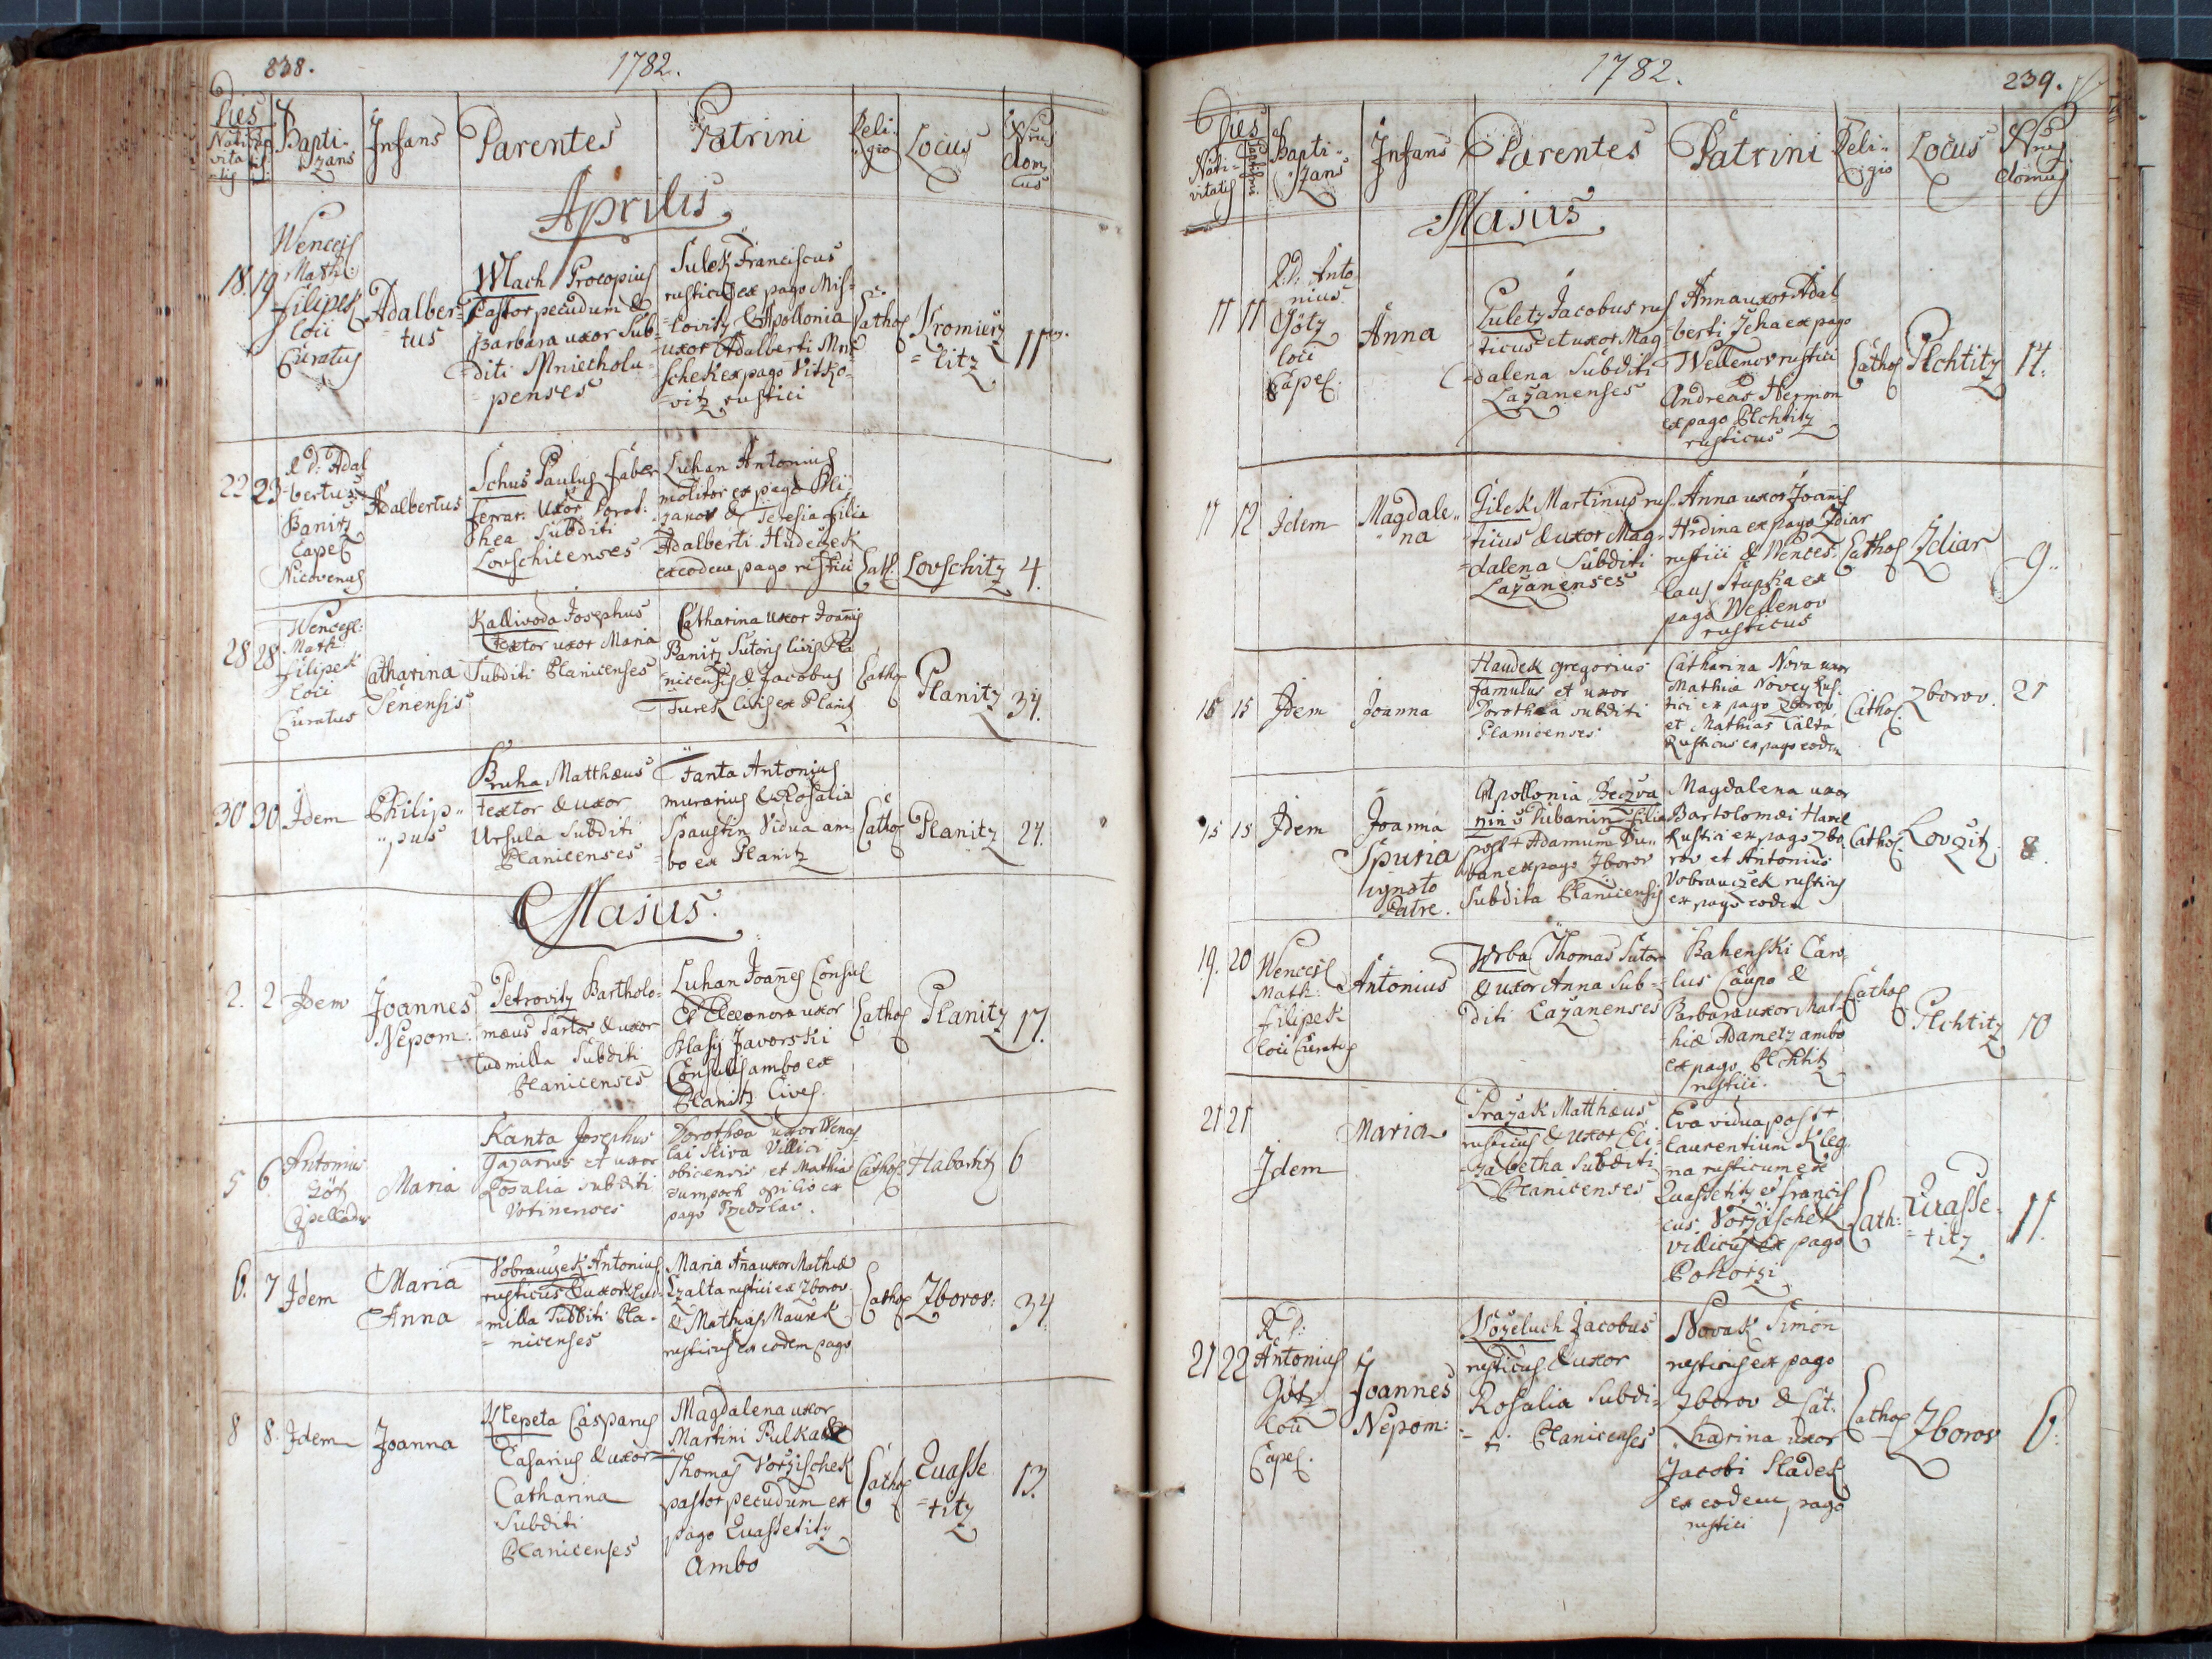 238.
1782.
Dies
Nati
vita
tis
Bapti
zans
Infans
Parentes
Patrini
Reli
gio
Locus
Nrus
dom
us
Aprilis
18. 19
Wencesl
Math:
Filipek
loci
Curatus
Adalber
tus
Wlach Procopius
Pastor pecudum &
Barbara uxor Sub
diti Mniecholu
penses
Sulek Franciscus
rusticus ex pago Mis
lovitz & Apollonia
uxor Adalberti Mra
schek ex pago Vitko
vitz rustici
Cathol
Kromierz
litz
11
22 23
R D: Adal
bertus
Banitz
Capel
Nicovenus
Adalbertus
Schus Paulus faber
ferrar: Uxor Dorot:
hea Subditi
Lovschicenses
Luhan Antonius
molitor ex pago Bli
zanov & Teresia filia
Adalberti Hudeczek
ex eodem pago rustici
Cath:
Lovschitz
4.
28 28
Wencesl:
Math:
Filipek
loci
Curatus
Catharina
Senensis
Kallivoda Josephus
textor uxor Maria
Subditi Planicenses
Catharina uxor Joannis
Banitz Sutoris civis Pla
nicensis & Jacobus
Turek civis ex Planitz
Cathol
Planitz
34.
30 30
Idem
Philip
pus
Bruha Matthæus
textor & uxor
Ursula Subditi
Planicenses
Fanta Antonius
murarius & Rosalia
Spaustin Vidua am
bo ex Planitz
Cathol
Planitz
24.
Majus.
2. 2
Idem
Joannes
Nepom:
Petrovitz Bartholo
mæus Sartor & uxor
Ludmilla Subditi
Planicenses
Luhan Joannes Consul
Et Eleonora uxor
Blasij Javorski
Consulis ambo ex
Planitz Cives
Cathol
Planitz
17.
5 6
Antonius
Götz
Capellanus
Maria
Kanta Josephus
Gazarus et uxor
Rosalia subditi
Votinenses
Dorothea uxor Wences
lai Sliva Villici
obicensis et Mathias
dumpoch opilio ex
pago Przedslav.
Cathol.
Habartitz
6
6. 7
Idem
Maria
Anna
Vobrauczek Antonius
rusticus & uxor Lud
milla Subditi Pla
nicenses
Maria Aña uxor Mathiæ
Czalta rustici ex Zborov
& Mathias Maurek
rusticus ex eodem pago
Cathol
Zborov:
34
8 8.
Idem
Joanna
Klepeta Casparus
Casarius & uxor
Catharina
Subditi
Planicenses
Magdalena uxor
Martini Pulka &
Thomas Vorzischek
pastor pecudum ex
pago Quassetitz
Ambo
Cathol
Quasse
titz
13.
1782.
239.
Dies
Nati
vitatis
Baptismi
Bapti
zans
Infans
Parentes
Patrini
Reli
gio
Locus
Nrus
domus
Majus
11 11
R.D: Anto
nius
Götz
loci
Capel.
Anna
Culetz Jacobus rus
ticus et uxor Mag
dalena Subditi
Lazanenses
Anna uxor Adal
berti Jcha ex pago
Wellenov rustici
Andreas Hermon
ex pago Plchtitz
rusticus
Cathol
Plchtitz
14.
11 12
Idem
Magdale
na
Gilek Martinus rus
ticus & uxor Mag
dalena Subditi
Lazanenses
Anna uxor Joanis
Hrdina ex pago Zdiar
rustici & Wences
laus Stupka ex
pago Wellenov
rusticus
Cathol
Zdiar
9.
15 15
Idem
Joanna
Haudek gregorius
famulus et uxor
Dorothea subditi
Planicenses
Catharina Nova uxor
Mathiæ Novey Rus
tici ex pago Zborov
et Mathias Calta
Rusticus ex pago eodem
Cathol.
Zborov.
21
15 15
Idem
Joanna
Spuria
ignoto
Patre.
Apollonia Beczva
filia
post + Adamum Du
ban ex pago Zborov
Subdita Planicensis
Magdalena uxor
Bartolomæi Havel
Rustici ex pago Zbo
rov et Antonius
Vobrauczek rusticus
ex pago eodem
Cathol.
Lovczitz
8.
19. 20
Wencesl
Math:
Filipek
loci Curatus
Antonius
Wrba Thomas Sutor
& uxor Anna Sub
diti Lazanenses
Bahenski Caro
lus Caupo &
Barbara uxor Mat
hiæ Adametz ambo
ex pago Plchtitz
rustici.
Cathol
Plchtitz
10
21 21
Idem
Maria
Prazak Matthæus
rusticus & uxor Eli
zabetha Subditi
Planicenses
Eva vidua post +
Laurentium Kleg
na rusticum ex
Quassetitz et Francis
cus Vorzischek
villicus ex pago
Pokorzi
Cath:
Quasse
titz
11.
21 22
R D:
Antonius
Götz
loci
Capel.
Joannes
Nepom:
Kozeluch Jacobus
rusticus & uxor
Rosalia Subdi
ti Planicenses
Novak Simon
rusticus ex pago
Zborov & Cat
harina uxor
Jacobi Sladek
ex eodem pago
rustici
Cathol
Zborov
6.